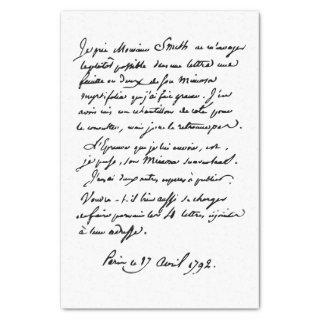 Je prie Monsieur Smith de m'envoyer
le plutôt possible dans une lettre une
feuille ou deux de son Mimosa
myrtifolia que j'ai fait graver. J'en
avois mis un échantillon de coté pour
le consulter, mais je ne le retrouve pas.
L'Epreuve que je lui envoie, est,
je pense, son Mimosa
J'en ai deux autres especes à publier.
Voudra-t-il bien aussi se charger
de faire parvenir les 4 lettres,
à leur adresse.
Paris le 17 Avril 1792.